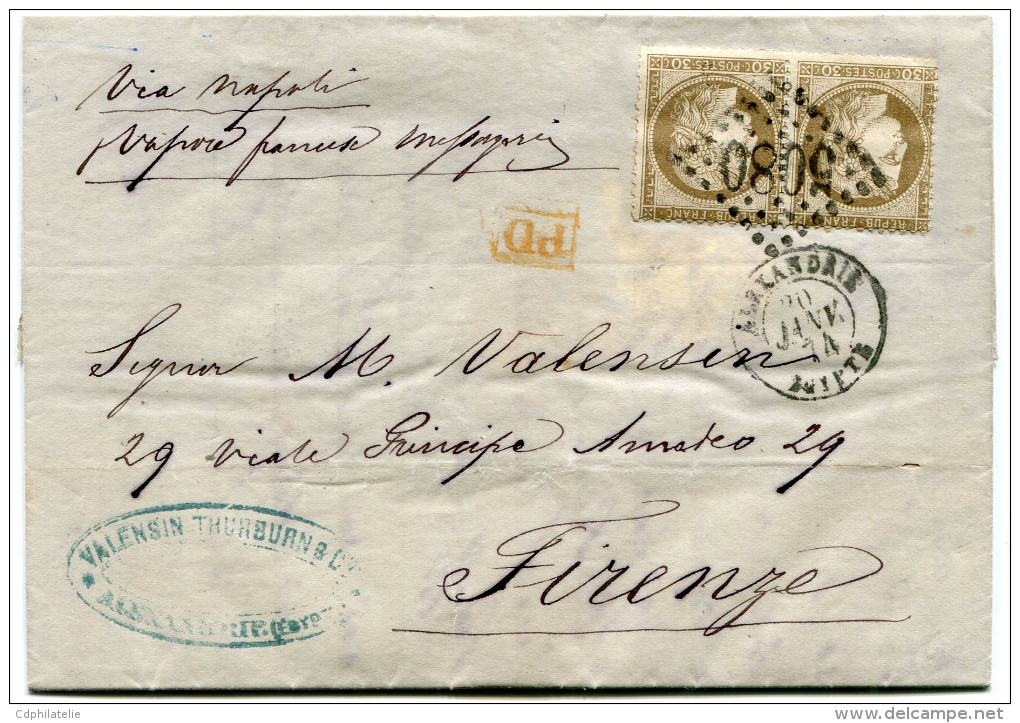 Via Napoli
Vapore francese Messagerie
30 C. POSTES 30 C.
REPUB. FRANC.
30 C. POSTES 30 C.
REPUB. FRANC.
5080
PD
ALEXANDRIE
20
JANV.
74
EGYPTE
Signor M. Valensin
29 Viale Principe Amadeo 29
Firenze
VALENSIN THURBURN & Co
ALEXANDRIE (EGYP
Cdphilatelie
www.delcampe.net